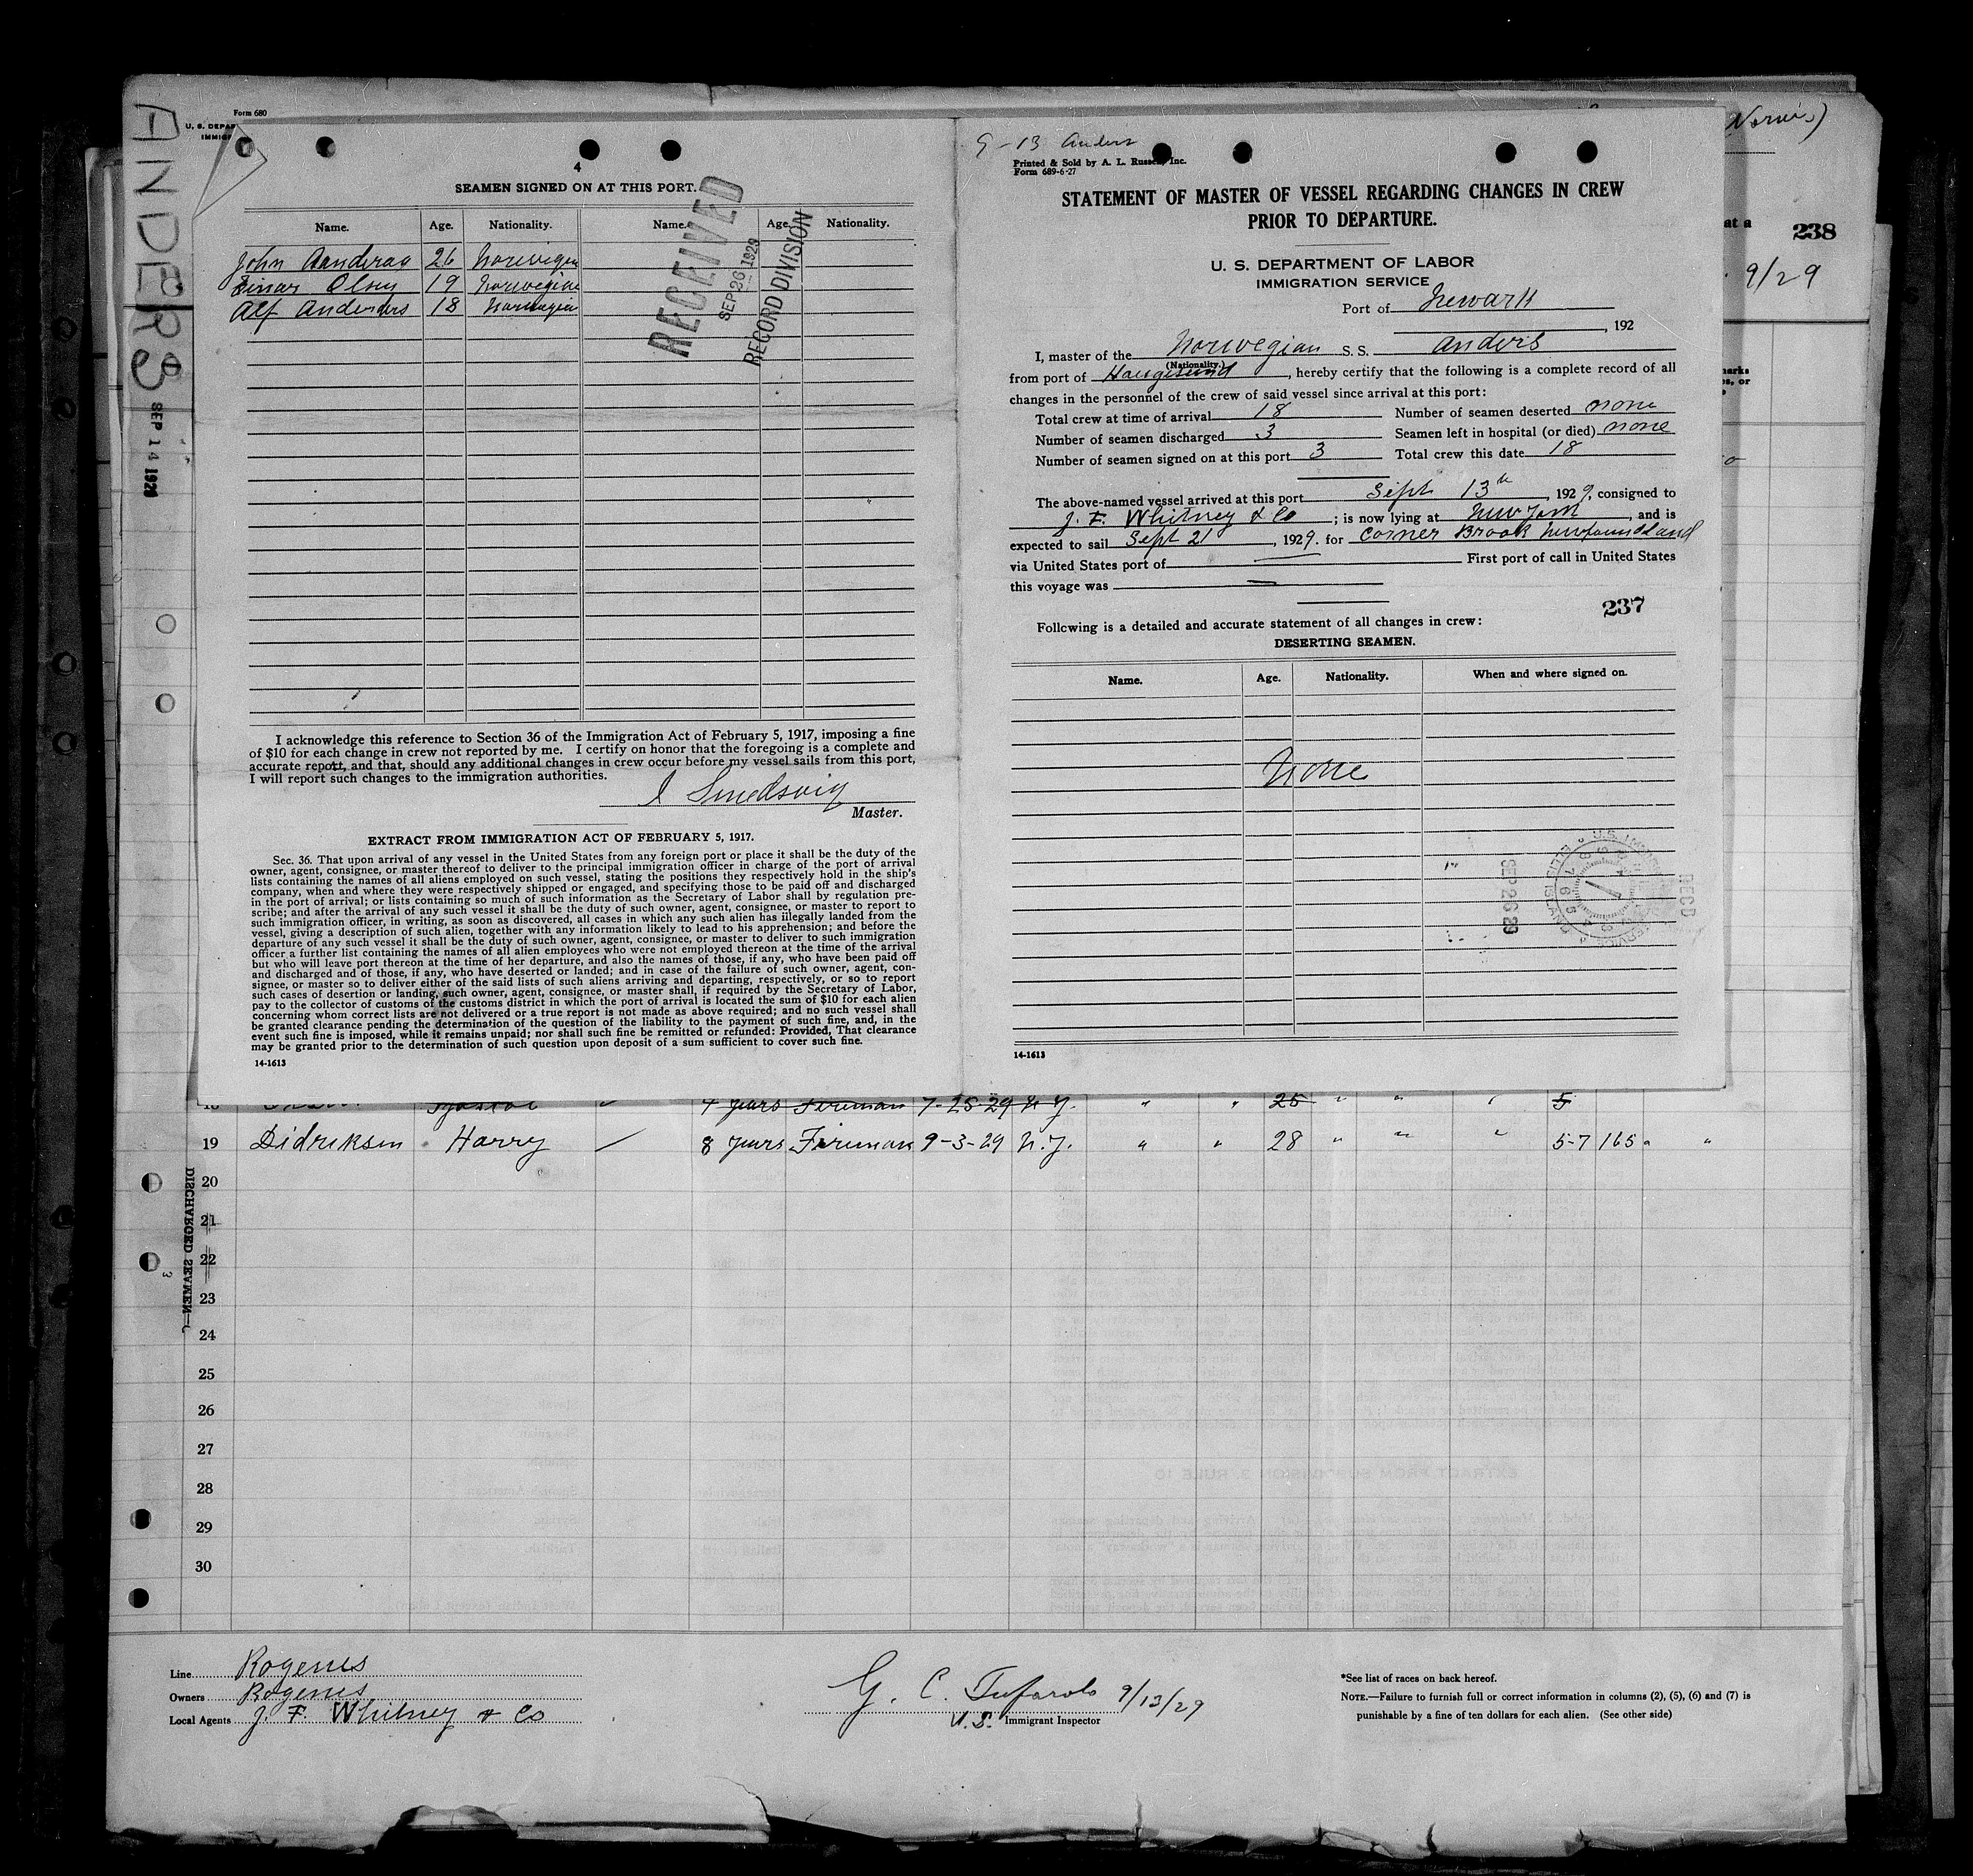 ANDERS
SEP 14 1929
Form 680
U. S. DEPAR
IMMIG
4
SEAMEN SIGNED ON AT THIS PORT.
Name. Age. Nationality. Name. Age. Nationality.
John Aanderaa 26 Norwegian
Einar Olsen 19 Norwegian
Alf Anderders 18 Norwegian
RECEIVED
SEP 26 1929
RECORD DIVISION
I acknowledge this reference to Section 36 of the Immigration Act of February 5, 1917, imposing a fine
of $10 for each change in crew not reported by me. I certify on honor that the foregoing is a complete and
accurate report, and that, should any additional changes in crew occur before my vessel sails from this port,
I will report such changes to the immigration authorities.
I Smedsvig
Master.
EXTRACT FROM IMMIGRATION ACT OF FEBRUARY 5, 1917.
Sec. 36. That upon arrival of any vessel in the United States from any foreign port or place it shall be the duty of the
owner, agent, consignee, or master thereof to deliver to the principal immigration officer in charge of the port of arrival
lists containing the names of all aliens employed on such vessel, stating the positions they respectively hold in the ship's
company, when and where they were respectively shipped or engaged, and specifying those to be paid off and discharged
in the port of arrival; or lists containing so much of such information as the Secretary of Labor shall by regulation pre-
scribe; and after the arrival of any such vessel it shall be the duty of such owner, agent, consignee, or master to report to
such immigration officer, in writing, as soon as discovered, all cases in which any such alien has illegally landed from the
vessel, giving a description of such alien, together with any information likely to lead to his apprehension; and before the
departure of any such vessel it shall be the duty of such owner, agent, consignee, or master to deliver to such immigration
officer a further list containing the names of all alien employees who were not employed thereon at the time of the arrival
but who will leave port thereon at the time of her departure, and also the names of those, if any, who have been paid off
and discharged and of those, if any, who have deserted or landed; and in case of the failure of such owner, agent, con-
signee, or master so to deliver either of the said lists of such aliens arriving and departing, respectively, or so to report
such cases of desertion or landing, such owner, agent, consignee, or master shall, if required by the Secretary of Labor,
pay to the collector of customs of the customs district in which the port of arrival is located the sum of $10 for each alien
concerning whom correct lists are not delivered or a true report is not made as above required; and no such vessel shall
be granted clearance pending the determination of the question of the liability to the payment of such fine, and, in the
event such fine is imposed, while it remains unpaid; nor shall such fine be remitted or refunded: Provided, That clearance
may be granted prior to the determination of such question upon deposit of a sum sufficient to cover such fine.
14-1613
9-13 Anders
Printed & Sold by A. L. Russell, Inc.
Form 689-6-27
STATEMENT OF MASTER OF VESSEL REGARDING CHANGES IN CREW
PRIOR TO DEPARTURE.
U. S. DEPARTMENT OF LABOR
IMMIGRATION SERVICE
Port of Newark
, 192
I, master of the Norwegian S. S. Anders
(Nationality.)
from port of Haugesund, hereby certify that the following is a complete record of all
changes in the personnel of the crew of said vessel since arrival at this port:
Total crew at time of arrival 18 Number of seamen deserted none
Number of seamen discharged 3 Seamen left in hospital (or died) none
Number of seamen signed on at this port 3 Total crew this date 18
The above-named vessel arrived at this port Sept 13th, 1929, consigned to
J. F. Whitney & Co; is now lying at New York, and is
expected to sail Sept 21, 1929. for Corner Brook Newfoundland
via United States port of First port of call in United States
this voyage was
237
Following is a detailed and accurate statement of all changes in crew:
DESERTING SEAMEN.
Name. Age. Nationality. When and where signed on.
None
SEP 26 29
RECD
14-1613
238
9/29
4 years Fireman 7-25-29 N.Y. " " 25 " " " 5
19 Didriksen Harry 8 years Fireman 9-3-29 N.Y. " " 28 " " " 5-7 165 " "
DISCHARGED SEAMEN
3
20
21
22
23
24
25
26
27
28
29
30
Line Rogenes
Owners Rogenes
Local Agents J. F. Whitney & Co
G. C. Tufarolo 9/13/29
U.S. Immigrant Inspector
*See list of races on back hereof.
NOTE.—Failure to furnish full or correct information in columns (2), (5), (6) and (7) is
punishable by a fine of ten dollars for each alien. (See other side)